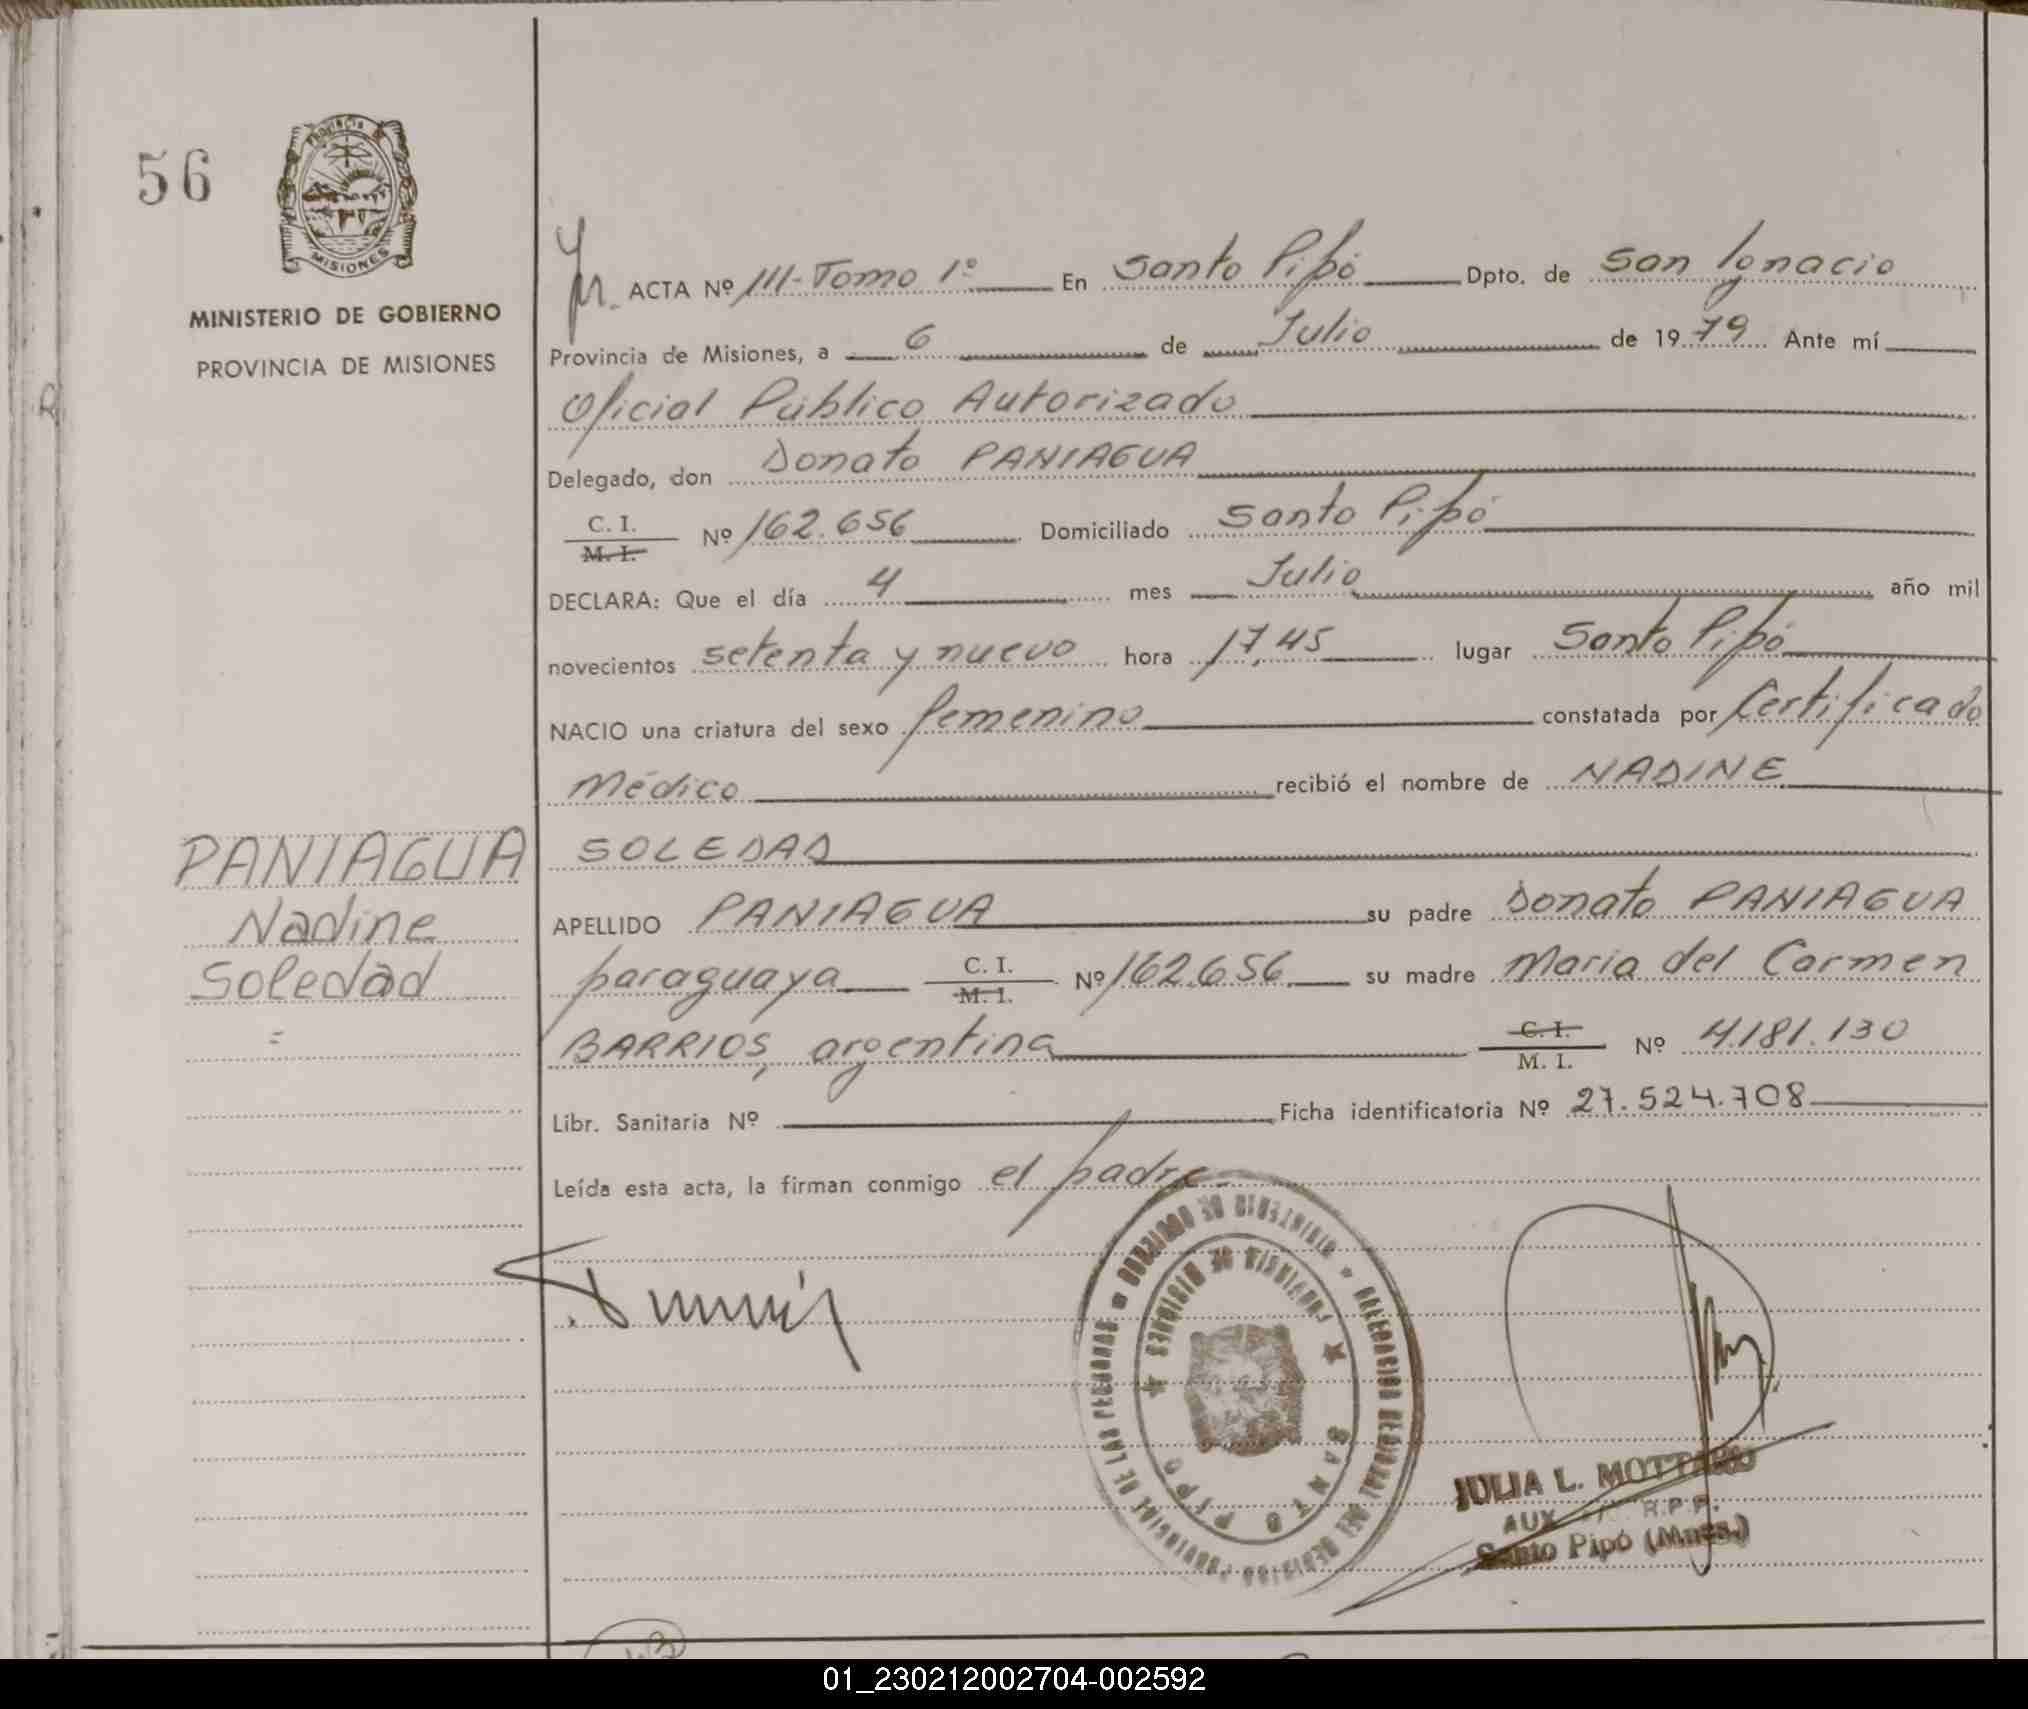 56
PROVINCIA DE
MISIONES
MINISTERIO DE GOBIERNO
PROVINCIA DE MISIONES
PANIAGUA
Nadine
Soledad
=
ACTA Nº 111-Tomo 1º En Santo Pipó Dpto. de San Ignacio
Provincia de Misiones, a 6 de Julio de 1979 Ante mí
Oficial Público Autorizado
Delegado, don Donato PANIAGUA
C. I.
M. I. Nº 162.656 Domiciliado Santo Pipó
DECLARA: Que el día 4 mes Julio año mil
novecientos setenta y nueve hora 17,45 lugar Santo Pipó
NACIO una criatura del sexo femenino constatada por Certificado
Médico recibió el nombre de NADINE
SOLEDAD
APELLIDO PANIAGUA su padre Donato PANIAGUA
paraguaya C. I. M. I. Nº 162.656 su madre Maria del Carmen
BARRIOS, argentina C. I. M. I. Nº 4.181.130
Libr. Sanitaria Nº Ficha identificatoria Nº 27.524.708
Leída esta acta, la firman conmigo el padre
MINISTERIO DE GOBIERNO * DELEGACION REGIONAL DEL REGISTRO PROVINCIAL DE LAS PERSONAS
PROVINCIA DE MISIONES
SANTO PIPO
JULIA L.
AUX R.P.P.
Santo Pipó (Mnes.)
01_230212002704-002592